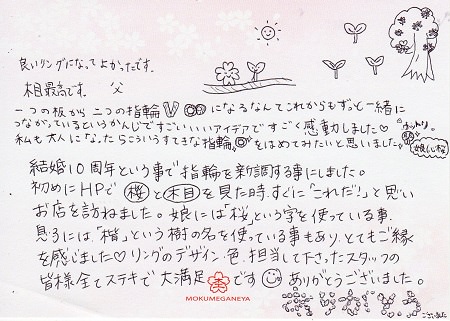 良いリングになってよかったです。
木目最高です。 父
一つの板から二つの指輪になるなんてこれからもずっと一緒に
つながっているというかんじですごいいいいアイデアですごく感動しました♡
私も大人になったらこういうすてきな指輪をはめてみたいと思いました。
娘(心桜)
結婚10周年という事で指輪を新調する事にしました。
初めにHPで桜と木目を見た時、すぐに「これだ!」と思い
お店を訪ねました。娘には「桜」という字を使っている事、
息子には「楷」という樹の名を使っている事もあり、とてもご縁
を感じました♡リングのデザイン、色、担当して下さったスタッフの
皆様全てステキで大満足です ありがとうございました。
MOKUMEGANEYA
ございました